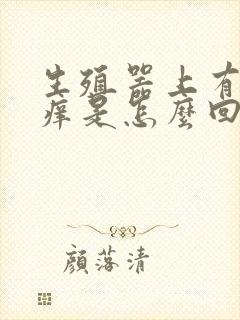 生殖器上有
痒是怎麼回
顔落清